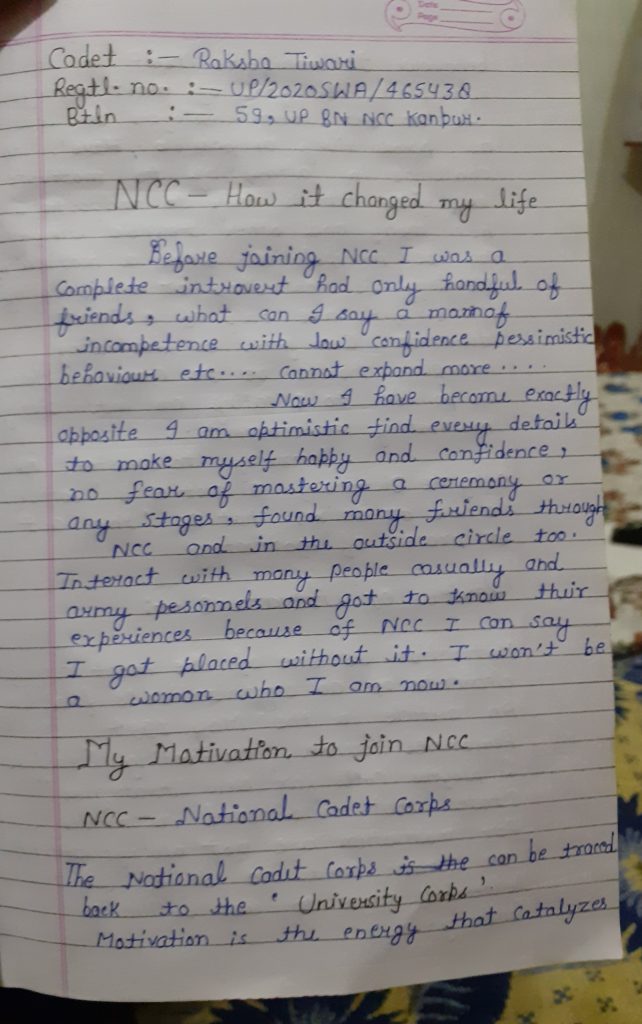 Date
Page
Cadet :- Raksha Tiwari
Regtl. no. :- UP/2020SWA/465438
Btln :- 59, UP BN NCC Kanpur.
NCC - How it changed my life
Before joining NCC I was a
complete introvert had only handful of
friends, what can I say a man of
incompetence with low confidence pessimistic
behaviour etc.... cannot expand more ....
Now I have become exactly
opposite I am optimistic find every details
to make myself happy and confidence,
no fear of mastering a ceremony or
any stages, found many friends through
NCC and in the outside circle too.
Interact with many people casually and
army pesonnels and got to know their
experiences because of NCC I can say
I got placed without it. I won't be
a woman who I am now.
My Motivation to join NCC
NCC - National Cadet Corps
The National Cadet Corps is the can be traced
back to the 'University Corps'.
Motivation is the energy that catalyzes